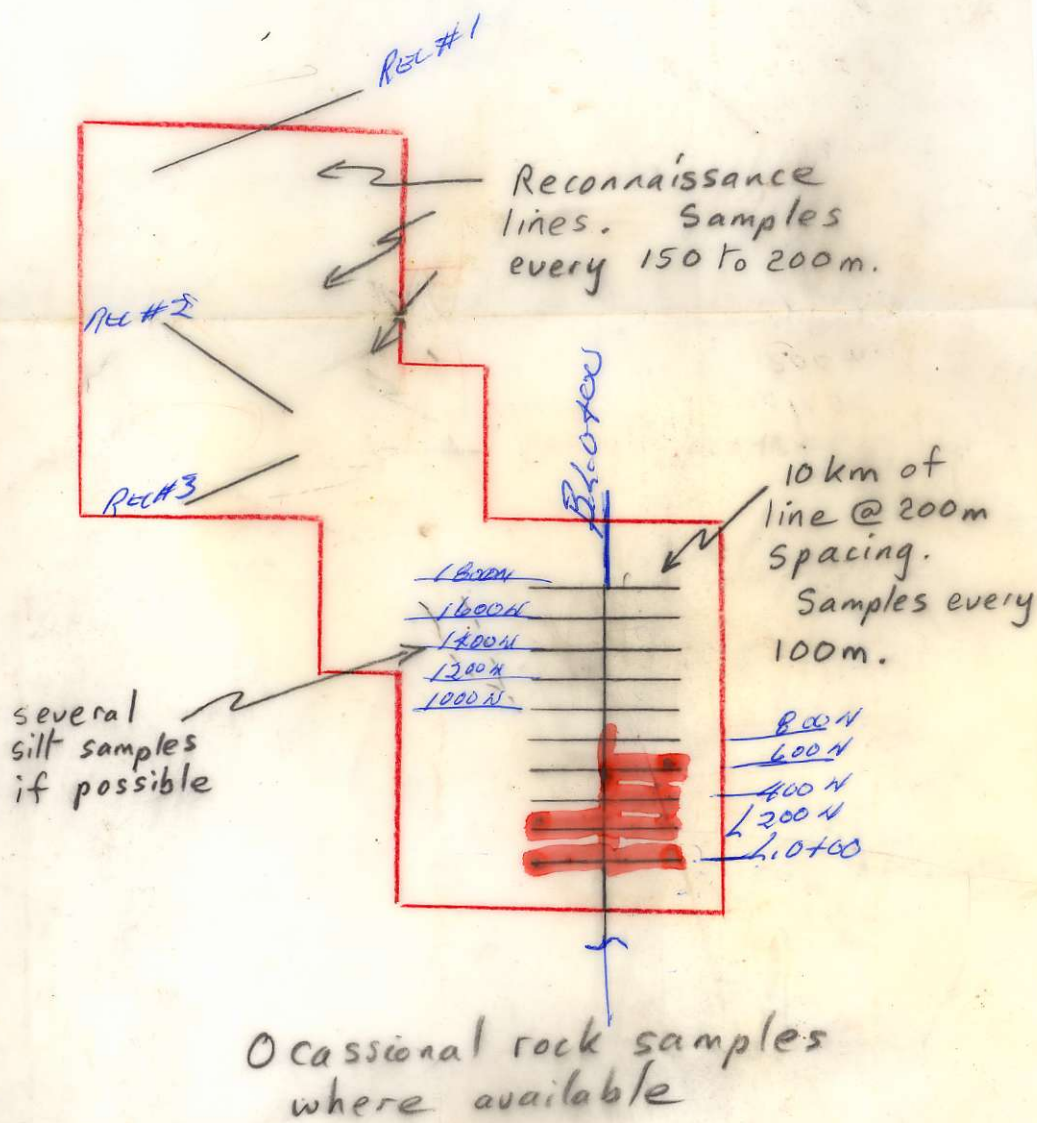 REC #1
Reconnaissance
lines. Samples
every 150 to 200m.
REC #2
REC #3
BL.0+00
10 km of
line @ 200m
spacing.
Samples every
100m.
1800N
1600N
1400N
1200N
1000N
several
silt samples
if possible
800N
600N
400N
L 200N
L.0+00
Ocassional rock samples
where available